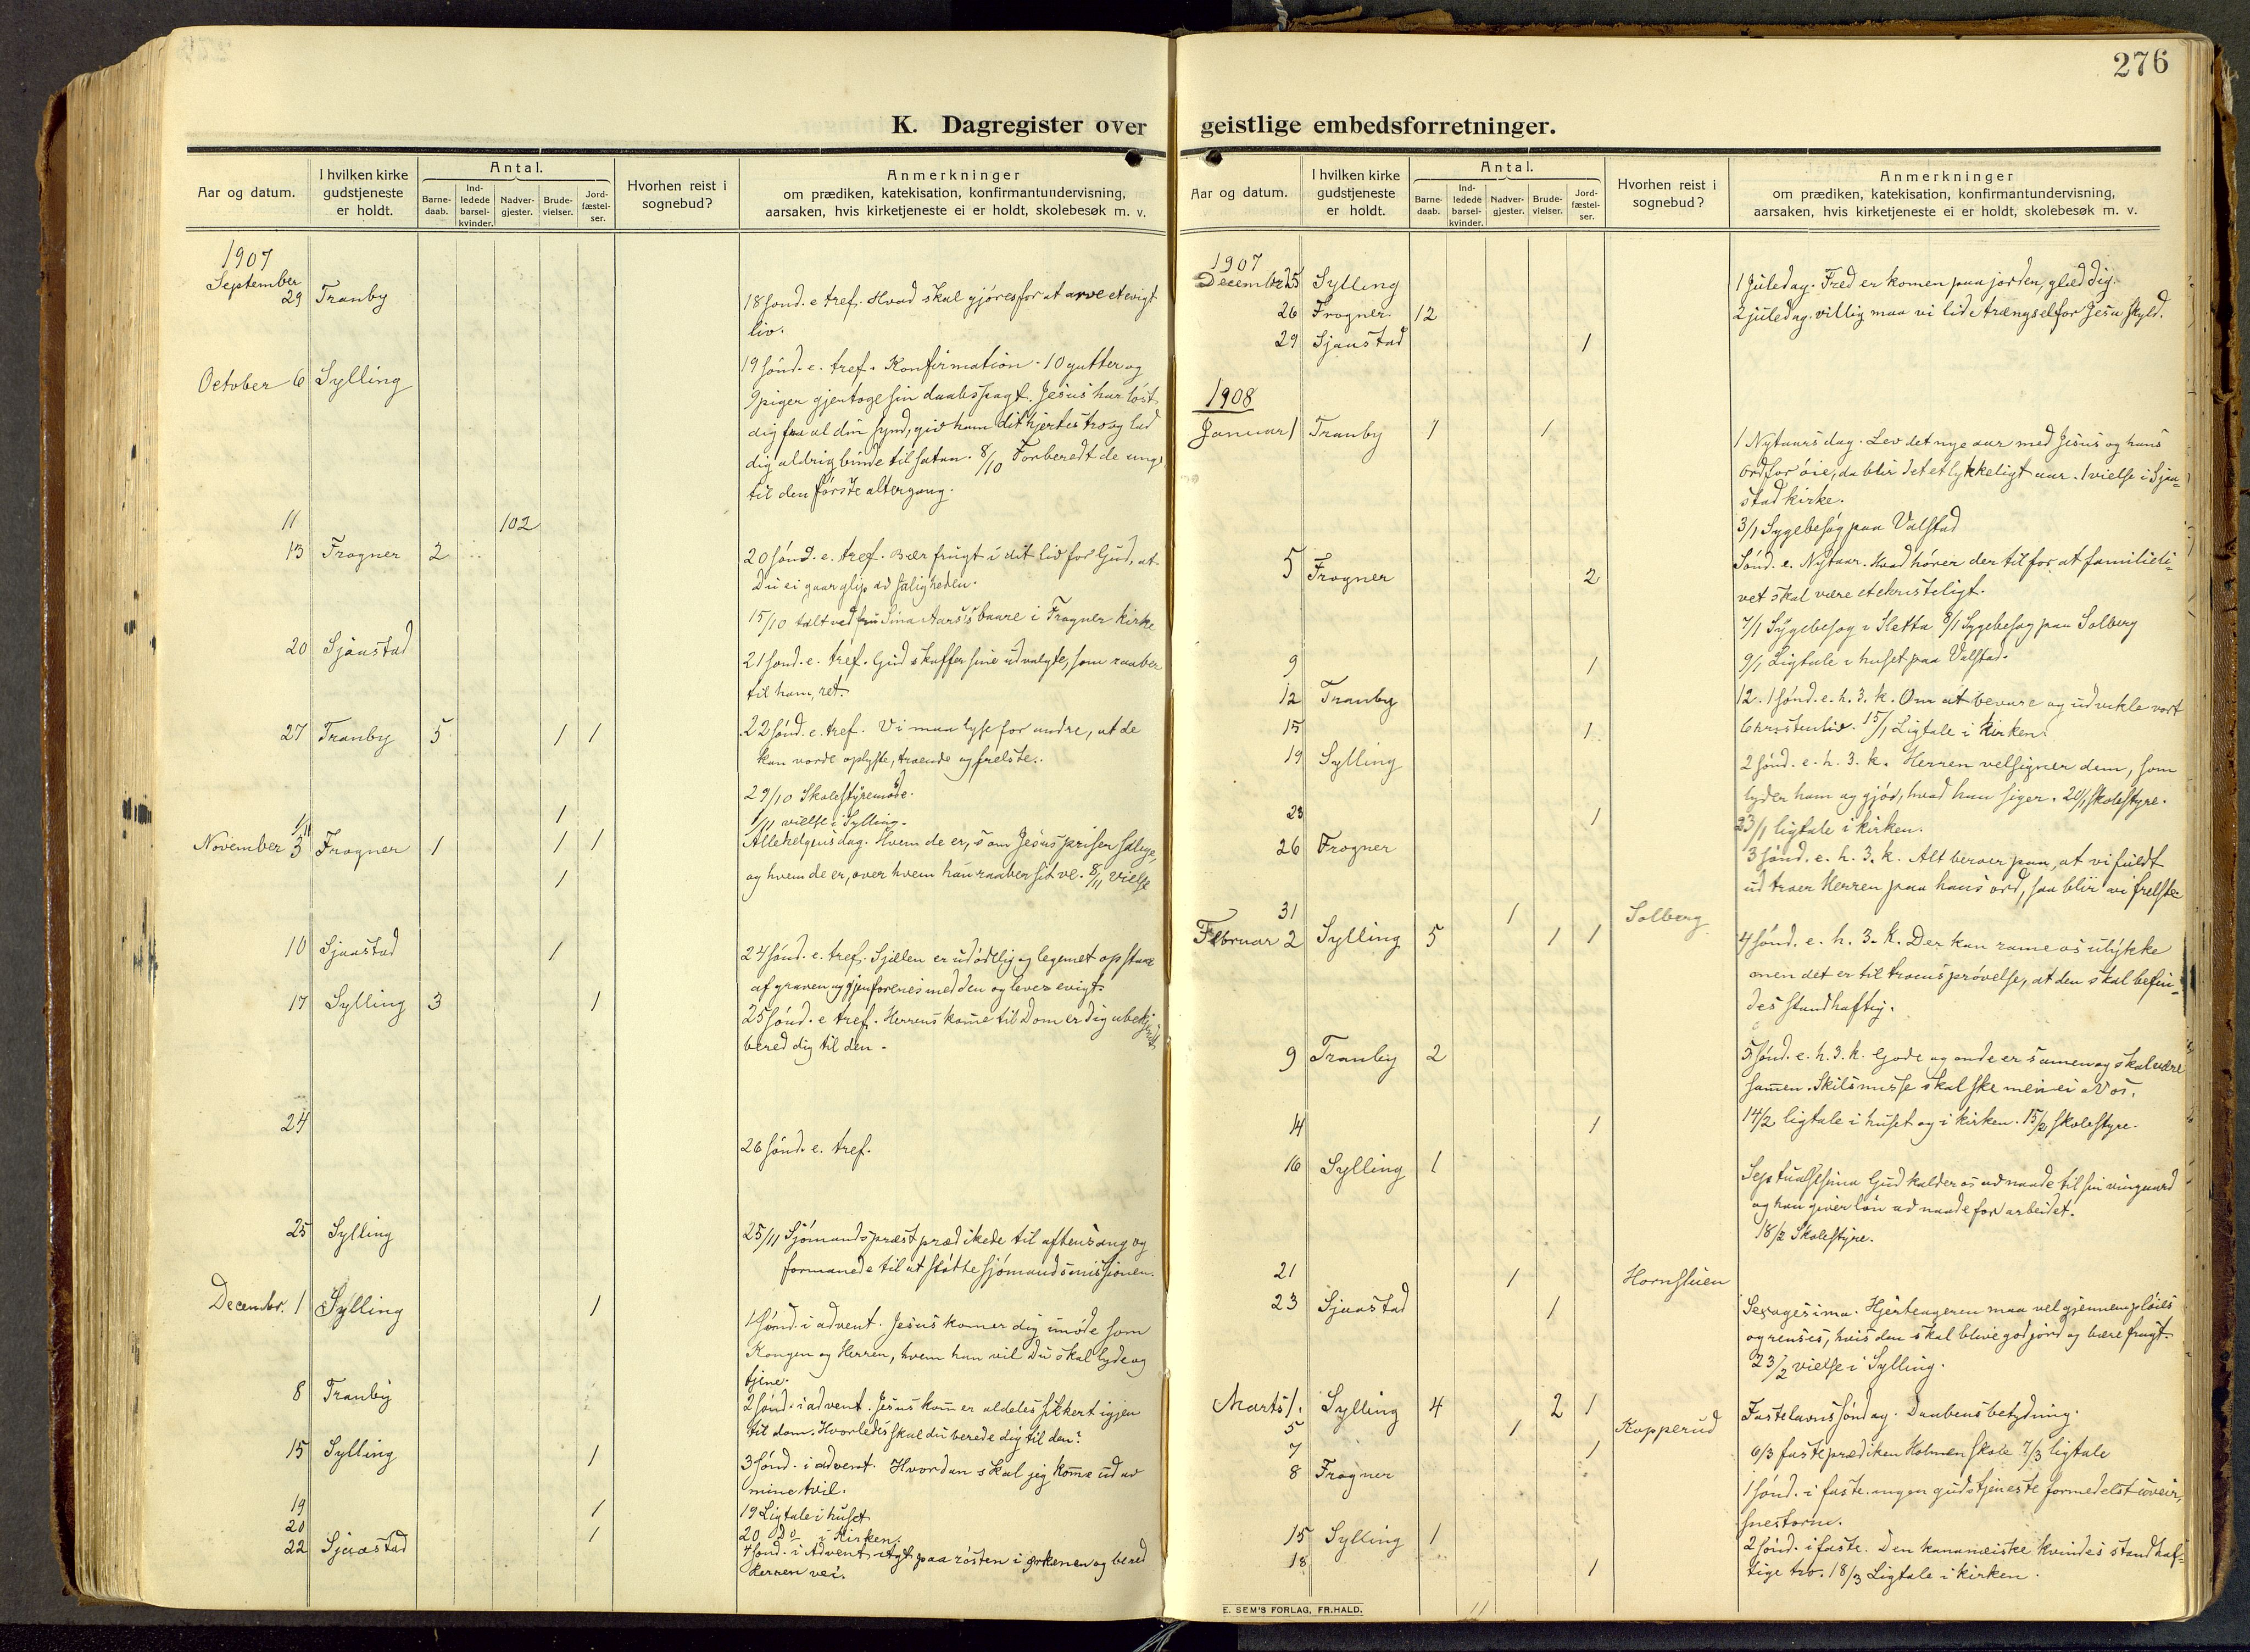 276
K. Dagregister over geistlige embedsforretninger.
Aar og datum.
I hvilken kirke gudstjeneste er holdt.
Antal.
Barne-daab.
Ind-ledede barsel-kvinder.
Nadver-gjester.
Brude-vielser.
Jord-fæstel-ser.
Hvorhen reist i sognebud?
Anmerkninger
om prædiken, katekisation, konfirmantundervisning,
aarsaken, hvis kirketjeneste ei er holdt, skolebesøk m. v.
1907
September
29 Tranby 18 sønd. e tref. Hvad skal gjøres for at arve et evigt
liv.
October 6 Sylling 19 sønd. e. tref. Konfirmation - 10 gutter og
9 piger gjentoge sin daabspagt. Jesus har løst
dig fra al din synd, giv ham dit hjertes tro og lad
dig aldrig binde til satan. 8/10 Forberedt de unge
til den første altergang.
11 102
13 Frogner 2 20 sønd. e. tref. Bær frugt i dit liv for Gud, at
Du ei gaar glip av saligheden.
15/10 talt ved fru Sina Aars's baare i Frogner kirke
20 Sjaastad 21 sønd. e. tref. Gud skaffer sine udvalgte, som raaber
til ham, ret.
27 Tranby 5 1 1 22 sønd. e. tref. Vi maa lyse for andre, at de
kan vorde oplyste, troende og frelste.
29/10 Skolestyremøde.
1/11 1 1/11 vielse i Sylling.
November 3 Frogner 1 1 1 Allehelgensdag. Hvem de er, som Jesus priser salige,
1 og hvem de er, over hvem han raaber sit ve. 8/11 vielse
10 Sjaastad 1 24 sønd. e. tref. Sjælen er udødelig og legemet opstaar
af graven og gjenforenes med den og lever evigt.
17 Sylling 3 1 25 sønd. e tref. Herrens komme til Dom er dig ubekjendt
bered dig til den.
24
26 sønd. e. tref.
25 Sylling 25/11 Sjömandspræst prædikede til aftensang og
formanede til at støtte sjömandsmissionen.
Decembr. 1 Sylling 1 1 sønd. i advent. Jesus komer dig imøde som
Kongen og Herren, hvem han vil Du skal lyde og
tjene.
8 Tranby 2 sønd. i advent. Jesus kommer aldeles sikkert igjen
til dom. Hvorledes skal du berede dig til den?
15 Sylling 1 3 sønd. i advent. Hvordan skal jeg komme ud av
mine tvil.
19 1 19 Ligtale i huset
20 1 20 Do i Kirken.
22 Sjaastad 4 sønd. i Advent. Agt paa røsten i ørkenen og bered
Herren vei.
Aar og datum.
I hvilken kirke gudstjeneste er holdt.
Antal.
Barne-daab.
Ind-ledede barsel-kvinder.
Nadver-gjester.
Brude-vielser.
Jord-fæstel-ser.
Hvorhen reist i sognebud?
Anmerkninger
om prædiken, katekisation, konfirmantundervisning,
aarsaken, hvis kirketjeneste ei er holdt, skolebesøk m. v.
1907
Decembr 25 Sylling 1 Juledag. Fred er komen paa jorden, glæd dig.
26 Frogner 12 2 juledag. villig maa vi lide trængsel for Jesu skyld.
29 Sjaastad 1
1908
Januar 1 Tranby 1 1 1 Nytaarsdag. Lev det nye aar med Jesus og hans
ord for øie, da blir det et lykkeligt aar. 1 vielse i Sjaa-
stad kirke.
3/1 Sygebesøg paa Valstad
5 Frogner 2 Sønd. e. Nytaar. Hvad hører der til for at familieli-
vet skal være et christeligt.
7/1 Sygebesøg i Sletta 8/1 Sygebesøg paa Solberg
9 1 9/1 Ligtale i huset paa Valstad.
12 Tranby 12. 1 sønd. e. h. 3. k. Om at bevare og udvikle vort
15 1 Christenliv. 15/1 Ligtale i Kirken.
19 Sylling 2 sønd. e. h. 3. k. Herren velsigner dem, som
lyder ham og gjør, hvad han siger. 20/1 skolestyre.
23 1 23/1 ligtale i kirken.
26 Frogner 3 sønd. e. h. 3. k. Alt beroer paa, at vi fuldt
ud troer Herren paa hans ord, saa blir vi frelste.
31 1 Solberg
Februar 2 Sylling 5 1 1 4 sønd. e. h. 3. k. Der kan rame os ulykke
men det er til troens prøvelse, at den skal befin-
des standhaftig.
9 Tranby 2 5 sønd. e. h. 3. k. Gode og onde er samen og skal være
sammen. Skilsmisse skal ske men ei av os.
14 1 14/2 ligtale i huset og i kirken. 15/2 skolestyre.
16 Sylling 1 Gud kalder os av naade til sin vingaard
og han giver løn av naade for arbeidet.
18/2 Skolestyre.
21 1 Hornsluen
23 Sjaastad 1 Sexagesima. Hjerteageren maa vel gjennempløies
og renses, hvis den skal blive god jord og bære frugt.
23/2 vielse i Sylling.
Marts 1. Sylling 4 2 1 Fastelavnssøndag. Daabens betydning.
5 1 Kopperud
7 1 6/3 fasteprædiken Holmen skole 7/3 ligtale
8 Frogner 1 sønd. i faste. ingen gudstjeneste formedelst uveir,
snestorm.
15 Sylling 1 2 sønd. i faste. Den kananæiske kvindes standhaf-
18 1 tige tro. 18/3 Ligtale i kirken.
E. SEM'S FORLAG, FR.HALD.